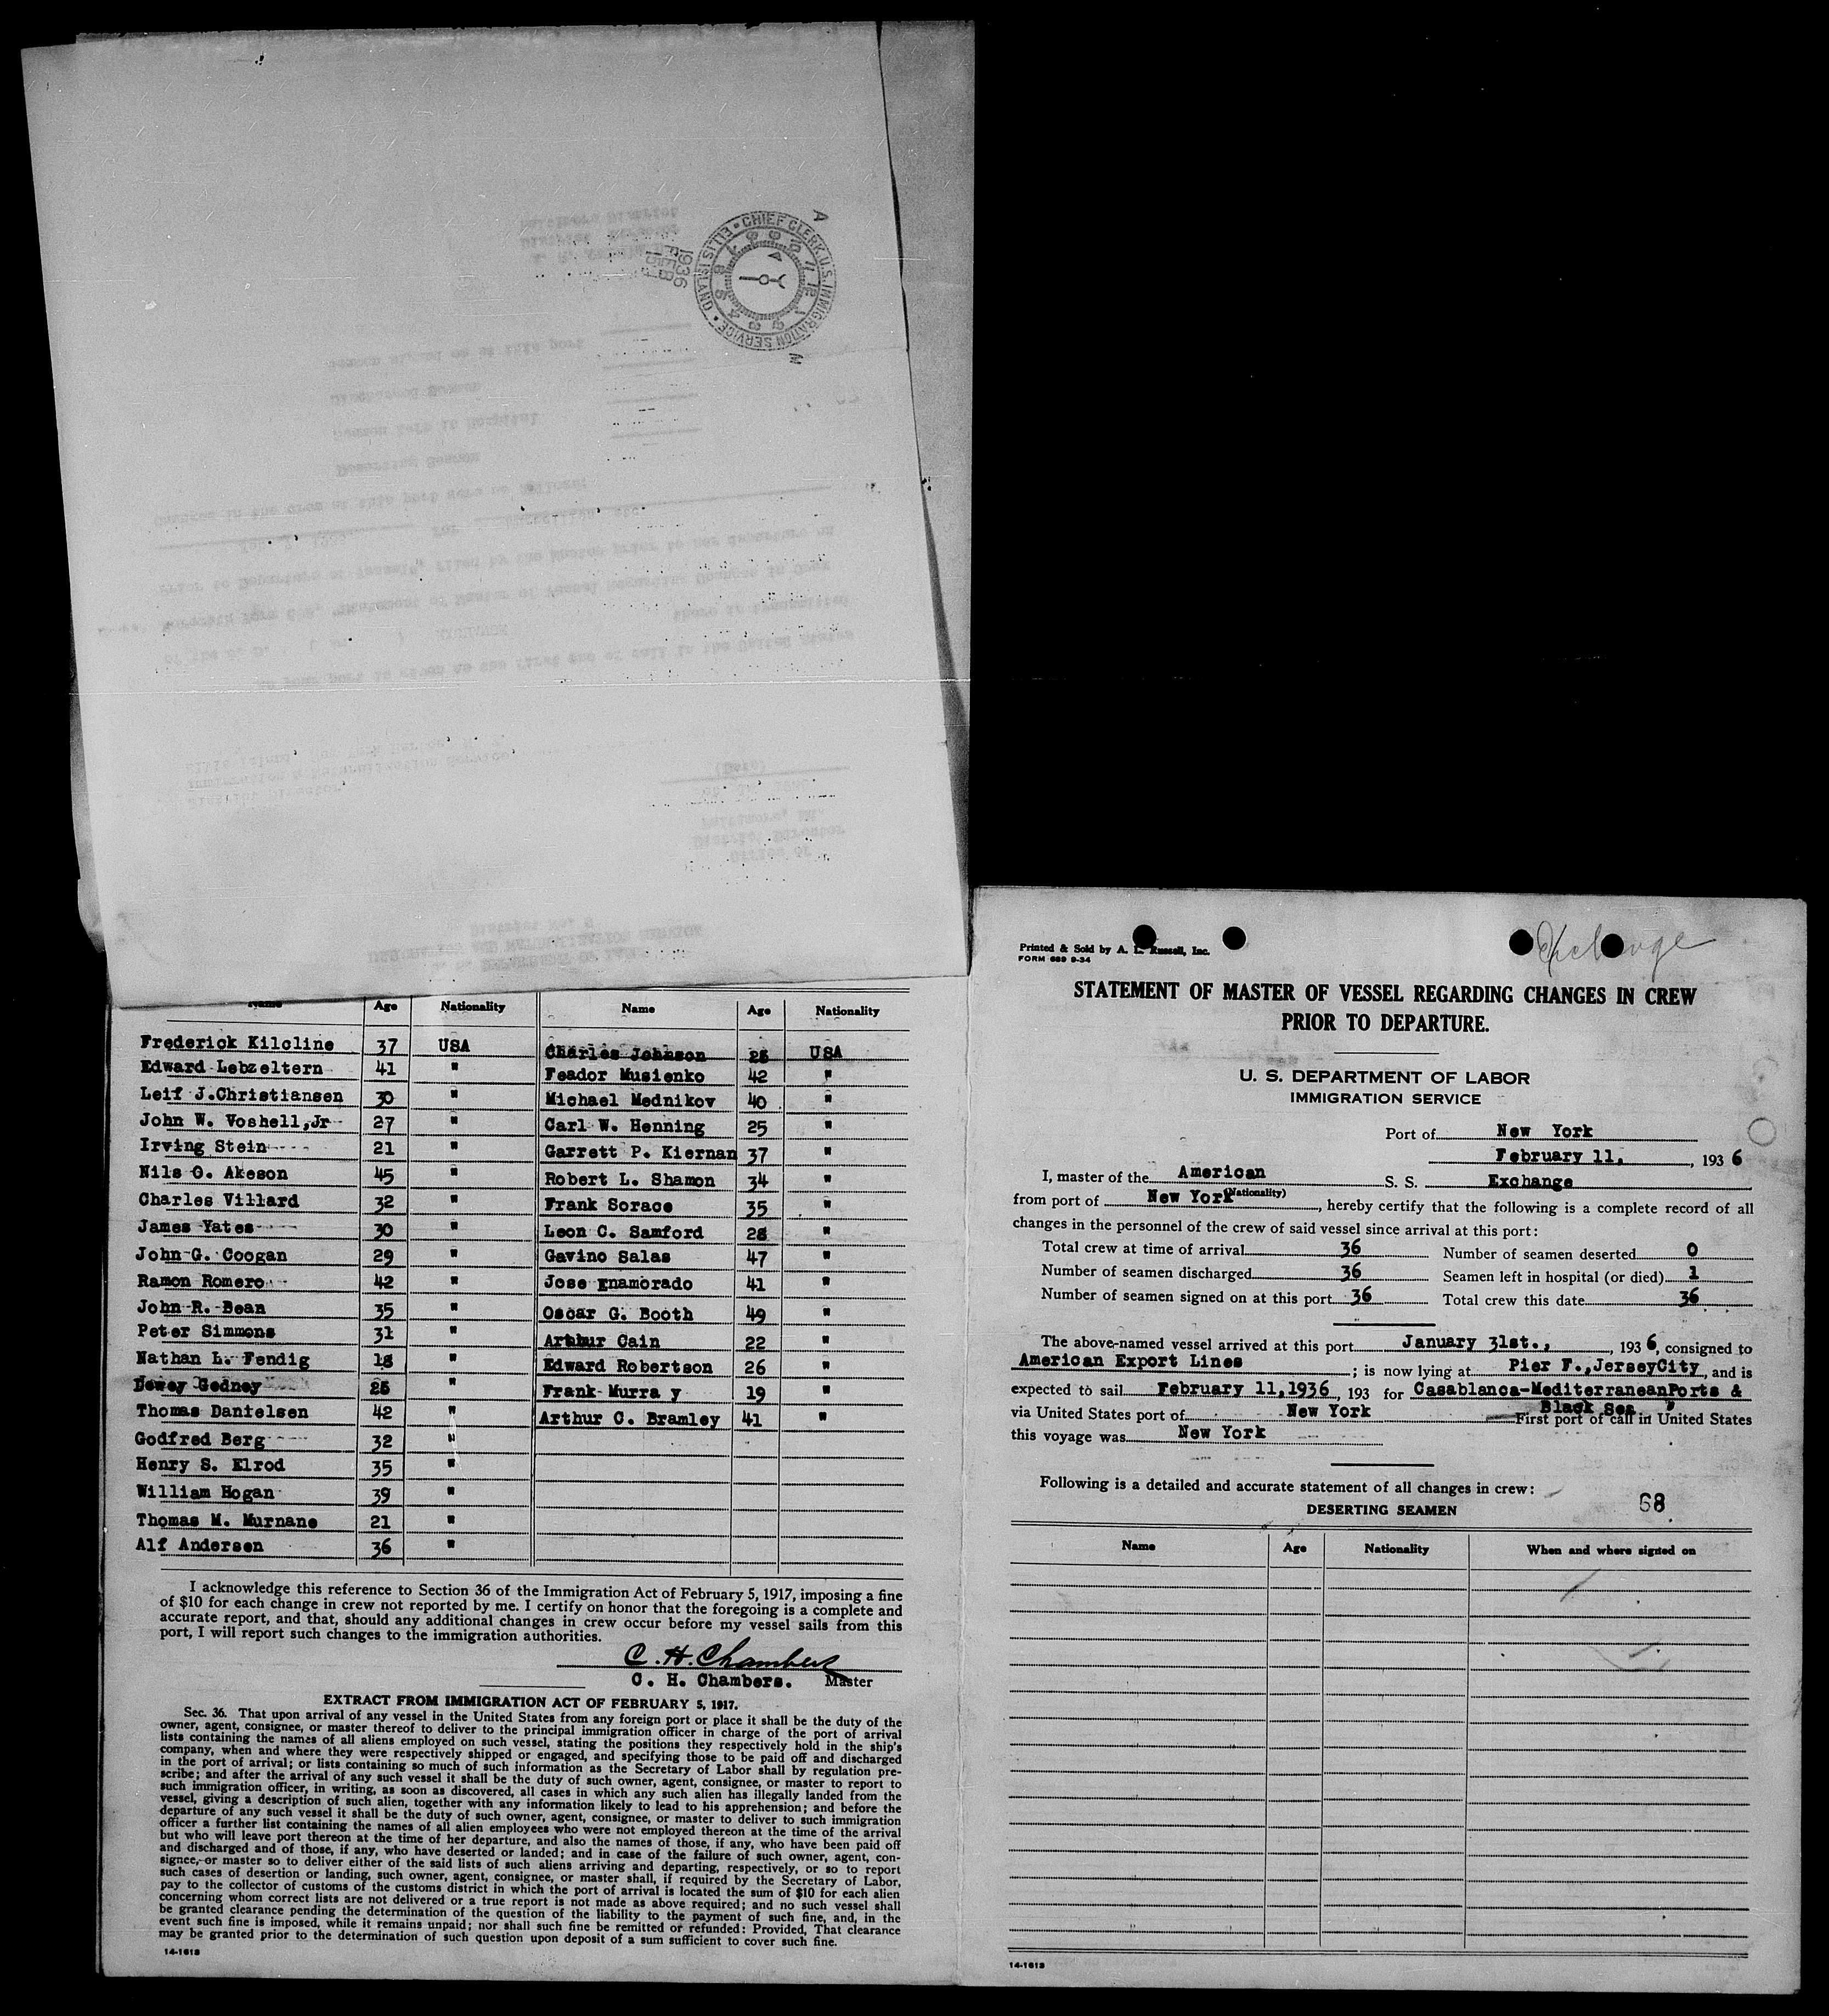 ELLIS ISLAND • CHIEF CLERK, U.S. IMMIGRATION SERVICE •
A
M
1936
FEB
Name Age Nationality Name Age Nationality
Frederick Kilcline 37 USA Charles Johnson 25 USA
Edward Lebzeltern 41 " Feador Musienko 42 "
Leif J.Christiansen 30 " Michael Mednikov 40 "
John W. Voshell,Jr 27 " Carl W. Henning 25 "
Irving Stein 21 " Garrett P. Kiernan 37 "
Nils O. Akeson 45 " Robert L. Shamon 34 "
Charles Villard 32 " Frank Sorace 35 "
James Yates 30 " Leon C. Samford 28 "
John G. Coogan 29 " Gavino Salas 47 "
Ramon Romero 42 " Jose Enamorado 41 "
John R. Bean 35 " Oscar G. Booth 49 "
Peter Simmons 31 " Arthur Cain 22 "
Nathan L. Fendig 18 " Edward Robertson 26 "
Dewey Gedney 25 " Frank Murra y 19 "
Thomas Danielsen 42 " Arthur C. Bramley 41 "
Godfred Berg 32 "
Henry S. Elrod 35 "
William Hogan 39 "
Thomas M. Murnane 21 "
Alf Andersen 36 "
I acknowledge this reference to Section 36 of the Immigration Act of February 5, 1917, imposing a fine
of $10 for each change in crew not reported by me. I certify on honor that the foregoing is a complete and
accurate report, and that, should any additional changes in crew occur before my vessel sails from this
port, I will report such changes to the immigration authorities.
C. H. Chambers
C. H. Chambers. Master
EXTRACT FROM IMMIGRATION ACT OF FEBRUARY 5, 1917.
Sec. 36. That upon arrival of any vessel in the United States from any foreign port or place it shall be the duty of the
owner, agent, consignee, or master thereof to deliver to the principal immigration officer in charge of the port of arrival
lists containing the names of all aliens employed on such vessel, stating the positions they respectively hold in the ship's
company, when and where they were respectively shipped or engaged, and specifying those to be paid off and discharged
in the port of arrival; or lists containing so much of such information as the Secretary of Labor shall by regulation pre-
scribe; and after the arrival of any such vessel it shall be the duty of such owner, agent, consignee, or master to report to
such immigration officer, in writing, as soon as discovered, all cases in which any such alien has illegally landed from the
vessel, giving a description of such alien, together with any information likely to lead to his apprehension; and before the
departure of any such vessel it shall be the duty of such owner, agent, consignee, or master to deliver to such immigration
officer a further list containing the names of all alien employees who were not employed thereon at the time of the arrival
but who will leave port thereon at the time of her departure, and also the names of those, if any, who have been paid off
and discharged and of those, if any, who have deserted or landed; and in case of the failure of such owner, agent, con-
signee, or master so to deliver either of the said lists of such aliens arriving and departing, respectively, or so to report
such cases of desertion or landing, such owner, agent, consignee, or master shall, if required by the Secretary of Labor,
pay to the collector of customs of the customs district in which the port of arrival is located the sum of $10 for each alien
concerning whom correct lists are not delivered or a true report is not made as above required; and no such vessel shall
be granted clearance pending the determination of the question of the liability to the payment of such fine, and, in the
event such fine is imposed, while it remains unpaid; nor shall such fine be remitted or refunded: Provided, That clearance
may be granted prior to the determination of such question upon deposit of a sum sufficient to cover such fine.
14-1618
Printed & Sold by A. L. Russell, Inc.
FORM 689 9-34
Exchange
STATEMENT OF MASTER OF VESSEL REGARDING CHANGES IN CREW
PRIOR TO DEPARTURE.
U. S. DEPARTMENT OF LABOR
IMMIGRATION SERVICE
Port of New York
February 11, , 193 6
I, master of the American S. S. Exchange
(Nationality)
from port of New York , hereby certify that the following is a complete record of all
changes in the personnel of the crew of said vessel since arrival at this port:
Total crew at time of arrival 36 Number of seamen deserted 0
Number of seamen discharged 36 Seamen left in hospital (or died) 1
Number of seamen signed on at this port 36 Total crew this date 36
The above-named vessel arrived at this port January 31st., , 193 6, consigned to
American Export Lines ; is now lying at Pier F.,JerseyCity , and is
expected to sail February 11,1936 , 193 for Casablanca-MediterraneanPorts &
Black Sea "
via United States port of New York First port of call in United States
this voyage was New York
Following is a detailed and accurate statement of all changes in crew:
68
DESERTING SEAMEN
Name Age Nationality When and where signed on
14-1618